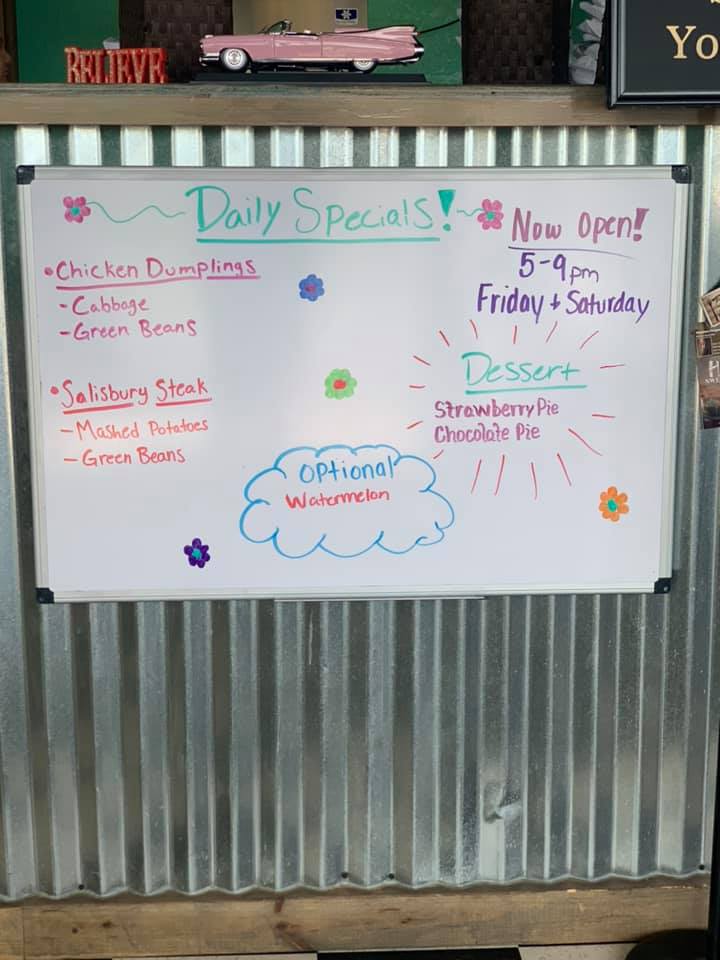 BELIEVE
Yo
Daily Specials!
Now Open!
5-9pm
Friday + Saturday
•Chicken Dumplings
-Cabbage
-Green Beans
•Salisbury Steak
-Mashed Potatoes
-Green Beans
Dessert
Strawberry Pie
Chocolate Pie
Optional
Watermelon